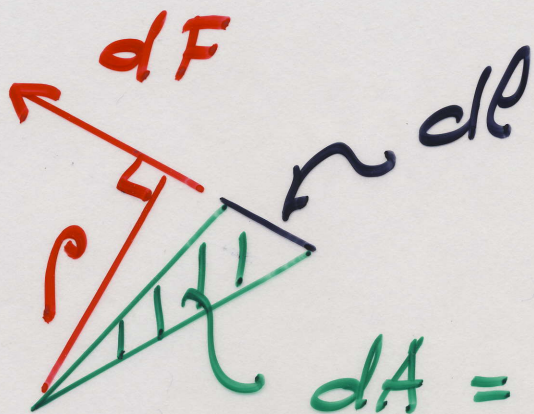 dF
dl
ρ
dA =